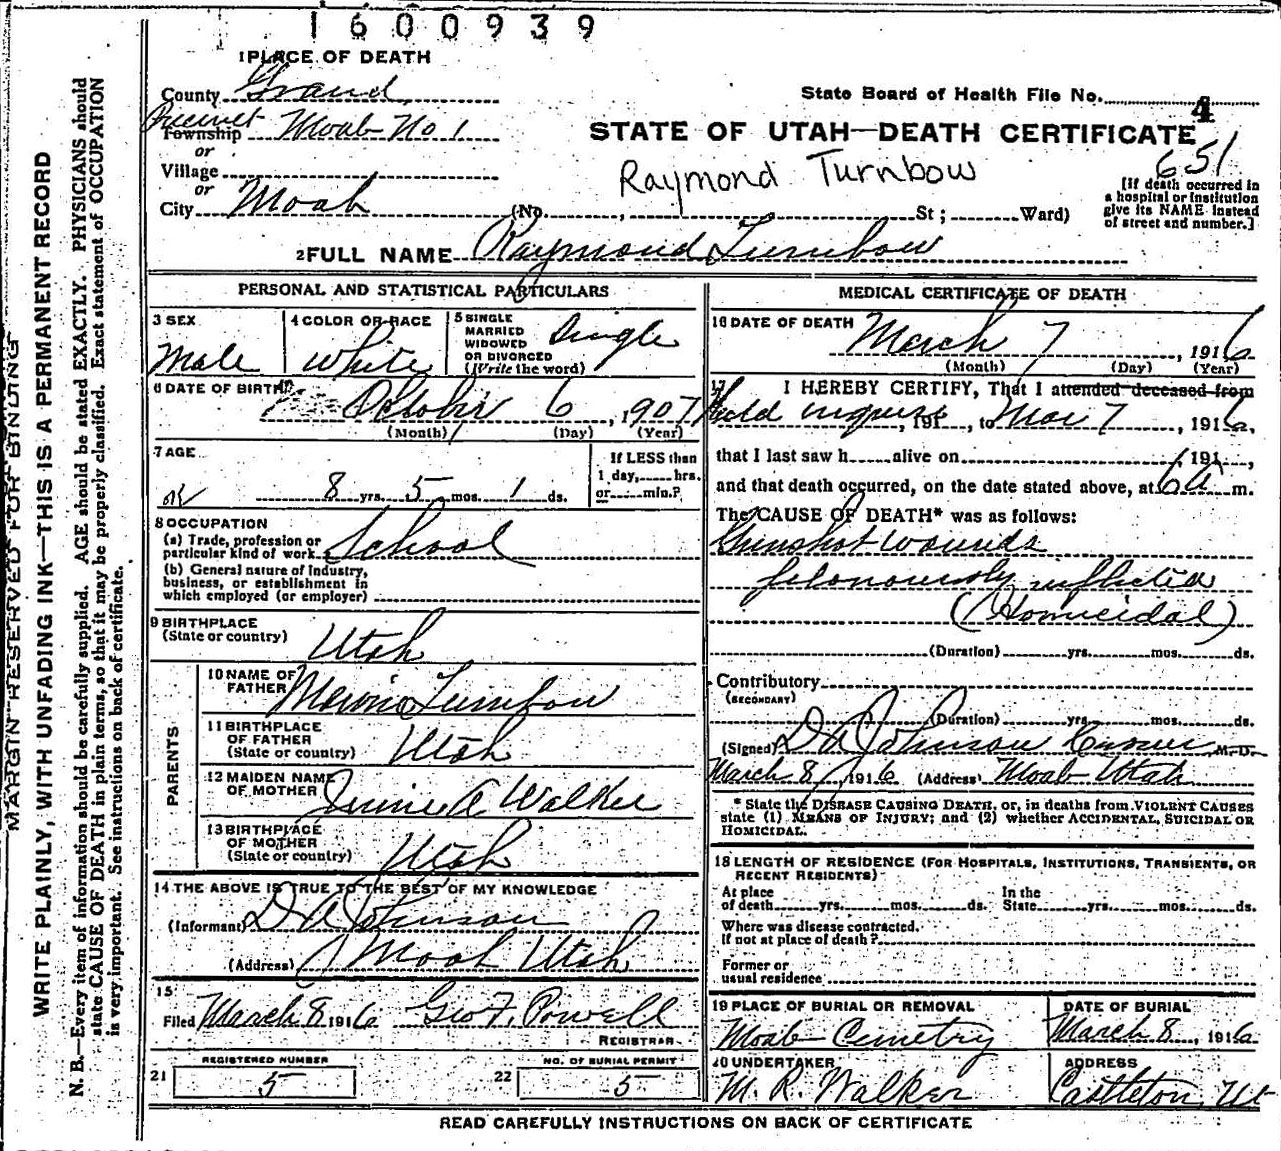 1600939
1 PLACE OF DEATH
County Grand
State Board of Health File No. 4
Precinct
Township Moab No. 1
or
STATE OF UTAH—DEATH CERTIFICATE
651
Village
or
Raymond Turnbow
[If death occurred in
a hospital or institution
give its NAME instead
of street and number.]
City Moab (No. , St ; Ward)
2 FULL NAME Raymond Turnbow
PERSONAL AND STATISTICAL PARTICULARS
3 SEX
Male
4 COLOR OR RACE
White
5 SINGLE
MARRIED
WIDOWED
OR DIVORCED
(Write the word)
Single
6 DATE OF BIRTH
October 6, 1907
(Month) (Day) (Year)
7 AGE
If LESS than
1 day, hrs.
or min.?
OK 8 yrs. 5 mos. 1 ds.
8 OCCUPATION
(a) Trade, profession or
particular kind of work School
(b) General nature of industry,
business, or establishment in
which employed (or employer)
9 BIRTHPLACE
(State or country) Utah
PARENTS
10 NAME OF
FATHER Turnbow
11 BIRTHPLACE
OF FATHER
(State or country) Utah
12 MAIDEN NAME
OF MOTHER A Walker
13 BIRTHPLACE
OF MOTHER
(State or country) Utah
14 THE ABOVE IS TRUE TO THE BEST OF MY KNOWLEDGE
(Informant) D A Johnson
(Address) Moab Utah
15
Filed March 8 1916 Geo F. Powell
REGISTRAR
REGISTERED NUMBER
21 5
NO. OF BURIAL PERMIT
22 5
MEDICAL CERTIFICATE OF DEATH
16 DATE OF DEATH March 7, 1916
(Month) (Day) (Year)
17 I HEREBY CERTIFY, That I attended deceased from
Held inquest, 191 , to Mar 7, 1916,
that I last saw h alive on , 191 ,
and that death occurred, on the date stated above, at 6 a m.
The CAUSE OF DEATH* was as follows:
Gunshot wounds
feloniously inflicted
(Homicidal)
(Duration) yrs. mos. ds.
Contributory
(SECONDARY)
(Duration) yrs. mos. ds.
(Signed) D A Johnson Coroner M. D.
March 8, 1916 (Address) Moab Utah
* State the DISEASE CAUSING DEATH, or, in deaths from VIOLENT CAUSES
state (1) MEANS OF INJURY; and (2) whether ACCIDENTAL, SUICIDAL OR
HOMICIDAL.
18 LENGTH OF RESIDENCE (FOR HOSPITALS, INSTITUTIONS, TRANSIENTS, OR
RECENT RESIDENTS)
At place
of death yrs. mos. ds.
In the
State yrs. mos. ds.
Where was disease contracted.
If not at place of death?
Former or
usual residence
19 PLACE OF BURIAL OR REMOVAL
Moab Cemetry
DATE OF BURIAL
March 8, 1916
20 UNDERTAKER
M. R. Walker
ADDRESS
Castleton, Ut
READ CAREFULLY INSTRUCTIONS ON BACK OF CERTIFICATE
MARGIN RESERVED FOR BINDING
WRITE PLAINLY, WITH UNFADING INK—THIS IS A PERMANENT RECORD
N. B.—Every item of information should be carefully supplied. AGE should be stated EXACTLY. PHYSICIANS should
state CAUSE OF DEATH in plain terms, so that it may be properly classified. Exact statement of OCCUPATION
is very important. See instructions on back of certificate.